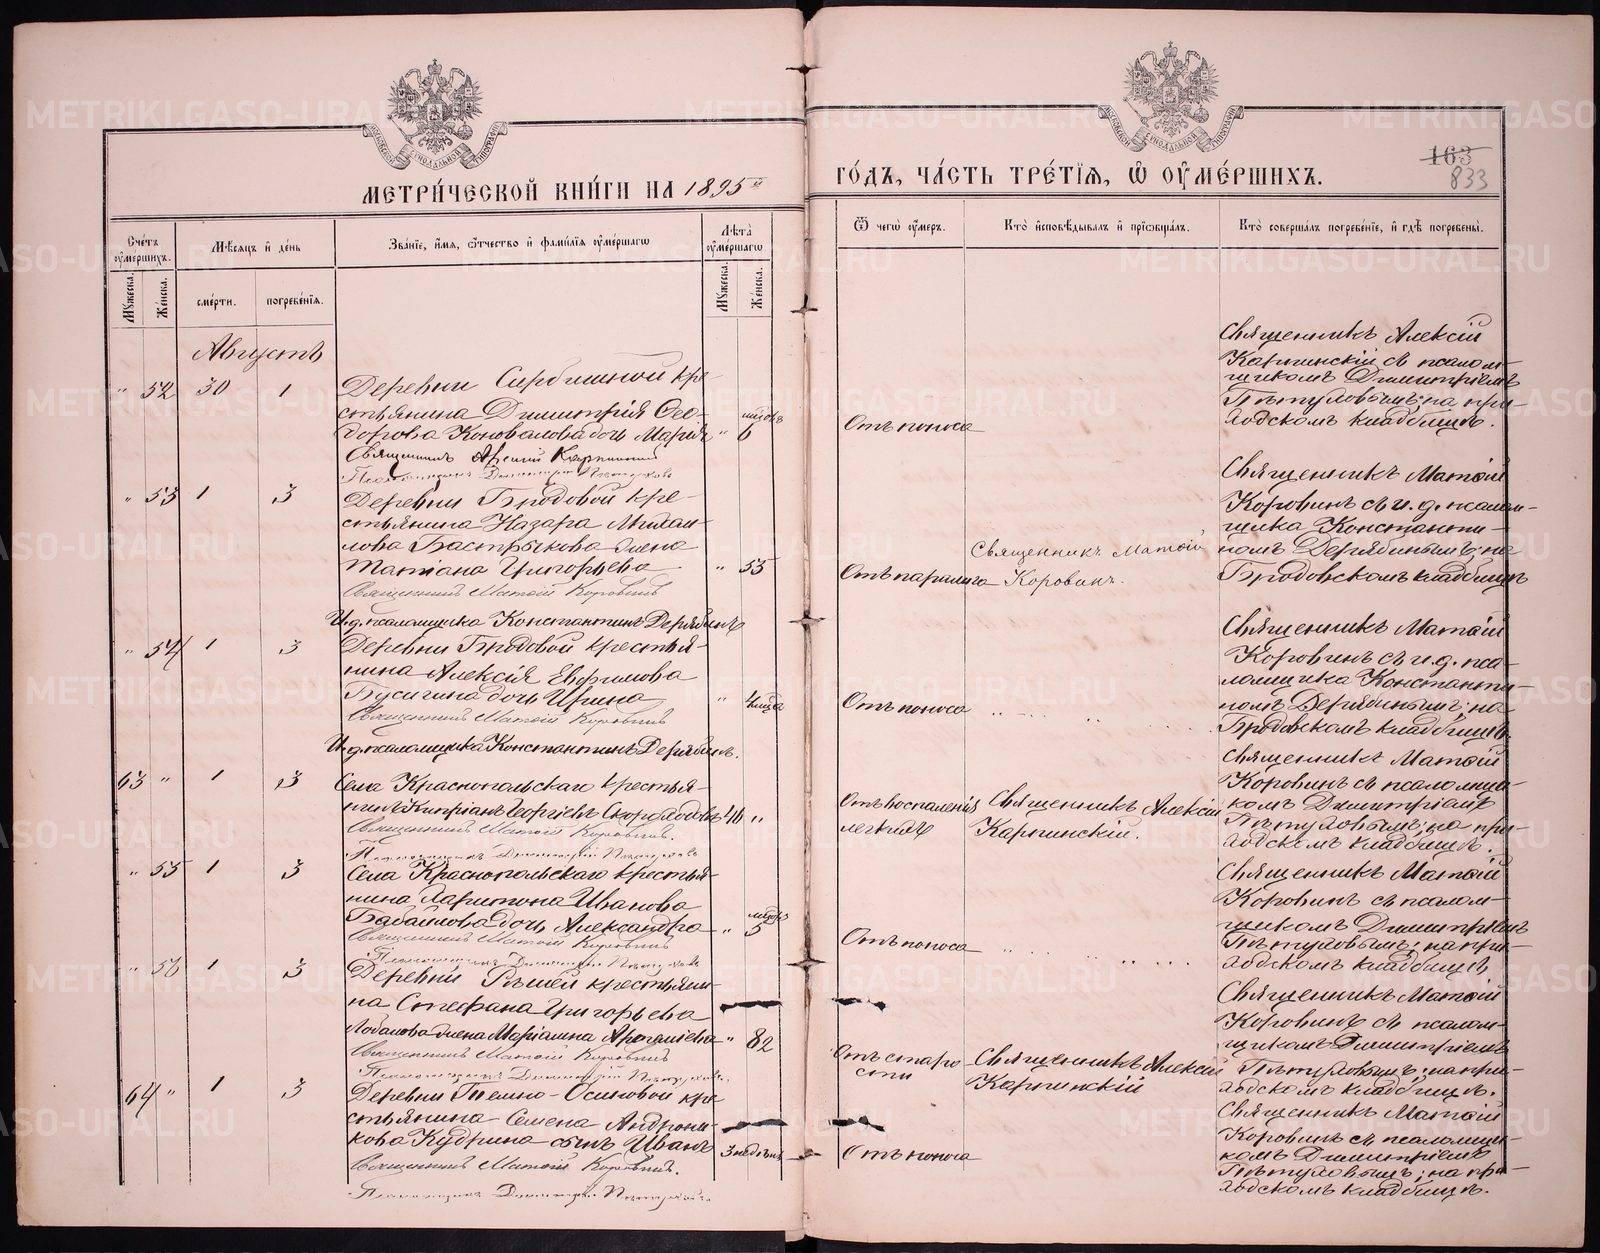 МЕТРИ́ЧЕСКОЙ КНИ́ГИ НА 1895 й
ГО́ДЪ, ЧА́СТЬ ТРЕ́ТІЯ, Ѿ ОУМЕ́РШИХЪ.
163
833
Сче́тъ оуме́ршихъ.
Мꙋжеска.
Же́нска.
Мѣ́сяцъ и҆ де́нь
сме́рти.
погребе́нїя.
Зва́нїе, и҆́мя, ѻ҆́тчество и҆ фами́лїя оуме́ршагѡ
Лѣ́та оуме́ршагѡ
Мꙋжеска.
Же́нска.
Ѿ чегѡ̀ оу́меръ.
Кто̀ и҆сповѣ́дывалъ и҆ прїѡбща́лъ.
Кто̀ соверша́лъ погребе́нїе, и҆ гдѣ̀ погребены̀.
Августъ
" 52 30 1
Деревни кре-
стьянина Димитрія Ѳео-
дорова Коновалова дочь Марія " 6
Священникъ Карпинскій
Отъ поноса
Священникъ Алексій
Карпинскій съ псалом-
щикомъ Димитріемъ
Пѣтуховымъ; на при-
ходскомъ кладбищѣ.
" 53 1 3
Деревни Бродовой кре-
стьянина Назара Михаи-
лова Бастрыкова жена
Татіана Григорьева " 55
Священникъ Матѳій Коровинъ
И.д. псаломщика Константинъ Дерябинъ
Отъ паралига
Священникъ Матѳій
Коровинъ.
Священникъ Матѳій
Коровинъ съ и.д. псалом-
щика Константи-
номъ Дерябинымъ; на
Бродовскомъ кладбищѣ
" 54 1 3
Деревни Бродовой крестья-
нина Алексія Евфимова
Бусыгина дочь Ирина " 4 мѣсца
Священникъ Матѳій Коровинъ
И.д. псаломщика Константинъ Дерябинъ.
Отъ поноса
Священникъ Матѳій
Коровинъ съ и.д. пса-
ломщика Константи-
номъ Дерябинымъ; на
Бродовскомъ кладбищѣ.
63 " 1 3
Села Краснопольскаго крестья-
нинъ Кипріанъ Георгіевъ Скороходовъ 46 "
Священникъ Матѳій Коровинъ.
Псаломщикъ Димитрій Пѣтуховъ
Отъ воспаленія
легкихъ
Священникъ Алексій
Карпинскій.
Священникъ Матѳій
Коровинъ съ псаломщи-
комъ Димитріемъ
Пѣтуховымъ; на при-
ходскомъ кладбищѣ.
" 55 1 3
Села Краснопольскаго крестья-
нина Харитона Иванова
Бабайлова дочь Александра " 5
Священникъ Матѳій Коровинъ
Псаломщикъ Димитрій Пѣтуховъ
Отъ поноса
Священникъ Матѳій
Коровинъ съ псалом-
щикомъ Димитріемъ
Пѣтуховымъ; на при-
ходскомъ кладбищѣ
" 56 1 3
Деревни крестьяни-
на Стефана Григорьева
Лобанова жена Маріамна " 82
Священникъ Матѳій Коровинъ
Псаломщикъ Димитрій Пѣтуховъ.
Отъ старо
сти
Священникъ Алексій
Карпинскій
Священникъ Матѳій
Коровинъ съ псалом-
щикомъ Димитріемъ
Пѣтуховымъ; на при-
ходскомъ кладбищѣ.
64 " 1 3
Деревни Темно-Осиновой кре
стьянина Семена Андрони-
кова Кудрина сынъ Иванъ 3 недѣли
Священникъ Матѳій Коровинъ.
Псаломщикъ Димитрій Пѣтуховъ.
Отъ поноса
Священникъ Матѳій
Коровинъ съ псаломщи-
комъ Димитріемъ
Пѣтуховымъ; на при-
ходскомъ кладбищѣ.
METRIKI.GASO-URAL.RU